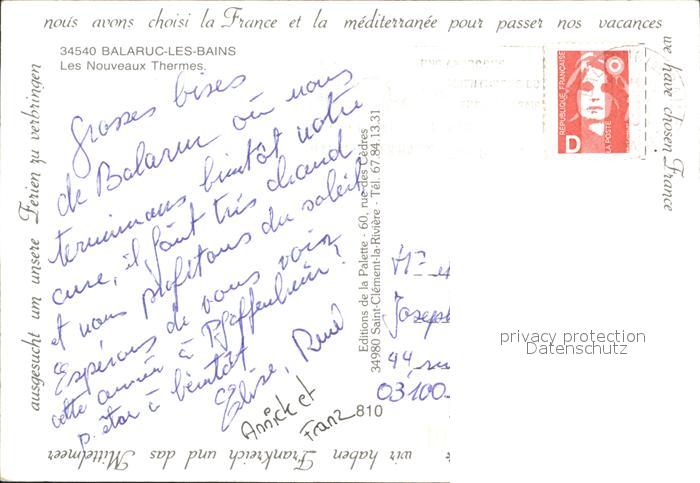 nous avons choisi la France et la méditerranée pour passer nos vacances
we have chosen France
34540 BALARUC-LES-BAINS
Les Nouveaux Thermes.
Grosses bises
de Balaruc où nous
terminons bientôt notre
cure, il fait très chaud
et nous profitons du soleil
Espérons de vous voir
cette année à Pfaffenheim?
à bientôt
Elise, René
Annick et
Franz
Editions de la Palette - 60, rue des Cèdres
34980 Saint-Clément-la-Rivière - Tél. 67.84.13.31
810
REPUBLIQUE FRANÇAISE
D
LA POSTE
Joseph
44
03100
privacy protection
Datenschutz
wir haben Frankreich und das Mittelmeer
ausgesucht um unsere Ferien zu verbringen